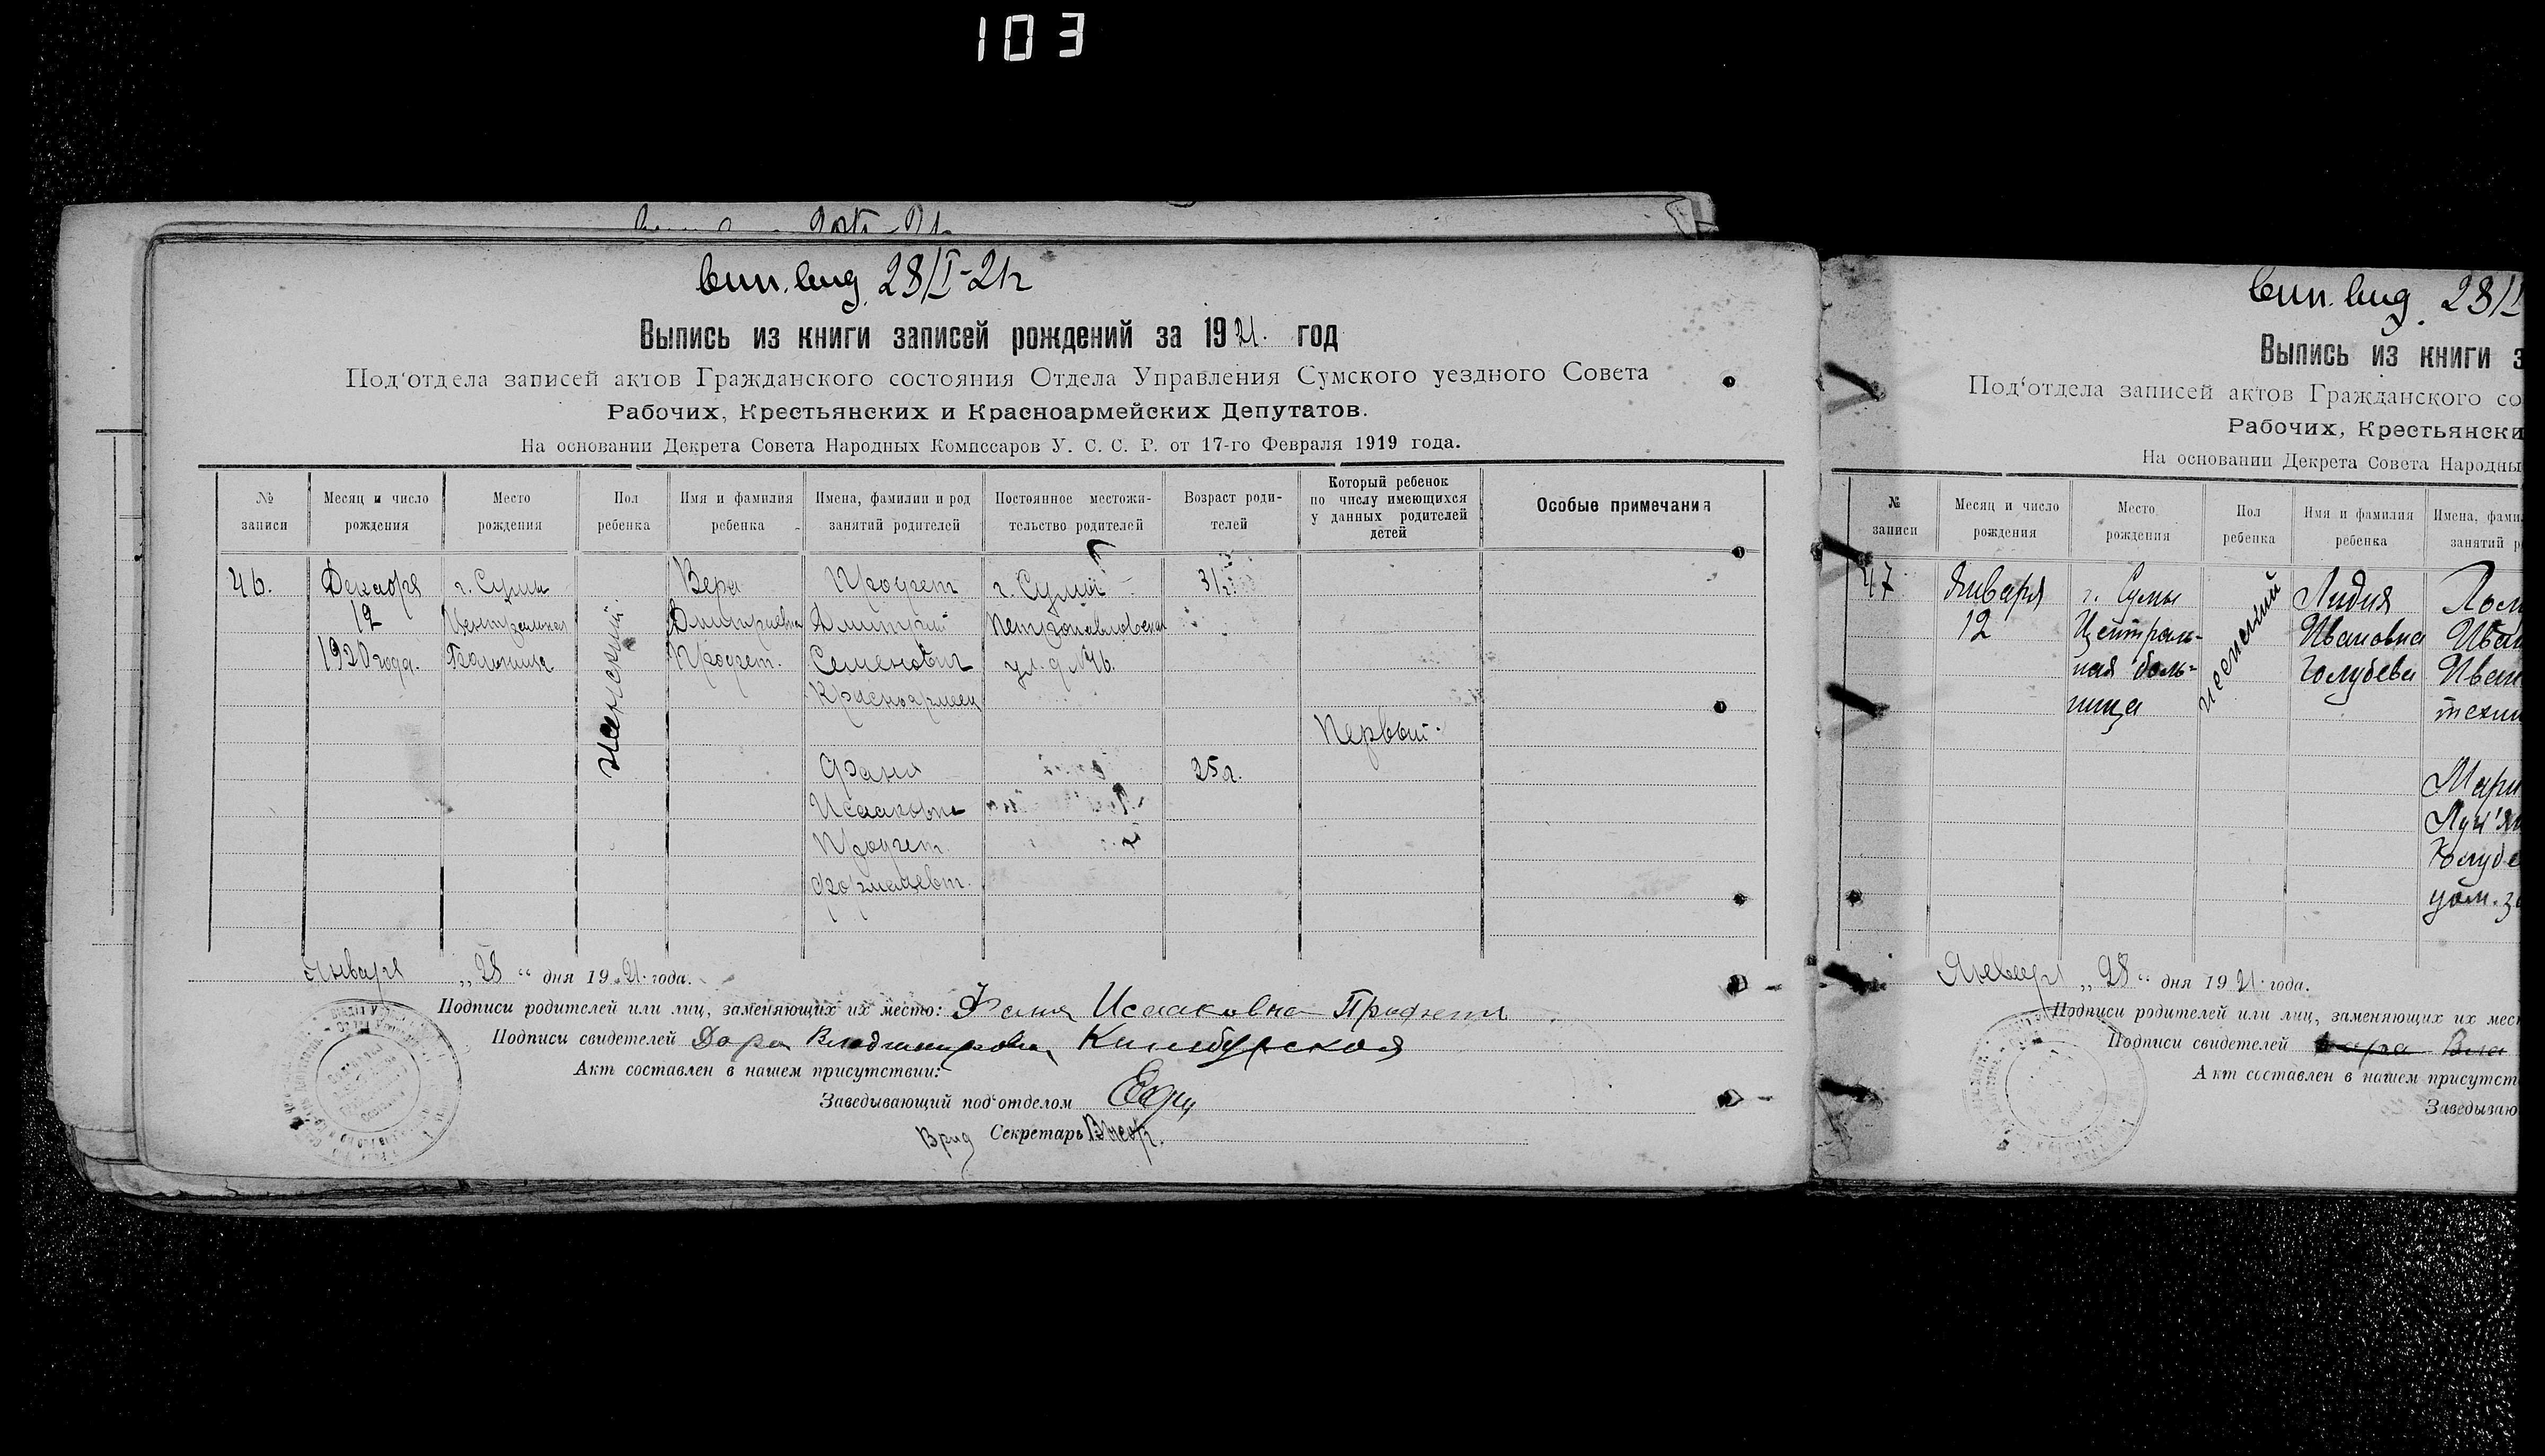 103
вып. выд. 28/I-21г
Выпись из книги записей рождений за 1921. год
Под‘отдела записей актов Гражданского состояния Отдела Управления Сумского уездного Совета
Рабочих, Крестьянских и Красноармейских Депутатов.
На основании Декрета Совета Народных Комиссаров У. С. С. Р. от 17-го Февраля 1919 года.
№ записи
Месяц и число рождения
Место рождения
Пол ребенка
Имя и фамилия ребенка
Имена, фамилии и род занятий родителей
Постоянное местожи-
тельство родителей
Возраст роди-
телей
Который ребенок
по числу имеющихся
у данных родителей
детей
Особые примечания
46.
Декабря
12
1920 года.
г. Сумы
Центральная
Больница
женский.
Вера
Дмитриевна
Профет.
Профет
Дмитрий
Семенович
Красноармеец
Фаня
Исааковна
Профет.
фармацевт.
г. Сумы
Петропавловская
ул. д № 46.
31
25 л.
Первый.
Января „ 28 “ дня 1921. года.
Подписи родителей или лиц, заменяющих их место: Фаня Исааковна Профет
Подписи свидетелей Дора Владимировна Кинбурская
Акт составлен в нашем присутствии:
Заведывающий под‘отделом
Врид Секретарь
вып. выд. 28/I
Выпись из книги з
Под‘отдела записей актов Гражданского со
Рабочих, Крестьянски
На основании Декрета Совета Народны
№ записи
Месяц и число рождения
Место рождения
Пол ребенка
Имя и фамилия ребенка
Имена, фами
занятий р
47
Января
12
г. Сумы
Централь-
ная боль-
ница
женский
Лидия
Ивановна
Голубева
Иван
техн
Мари
Голубе
Января „ 28 “ дня 1921. года.
Подписи родителей или лиц, заменяющих их мест
Подписи свидетелей
Акт составлен в нашем присутст
Заведываю